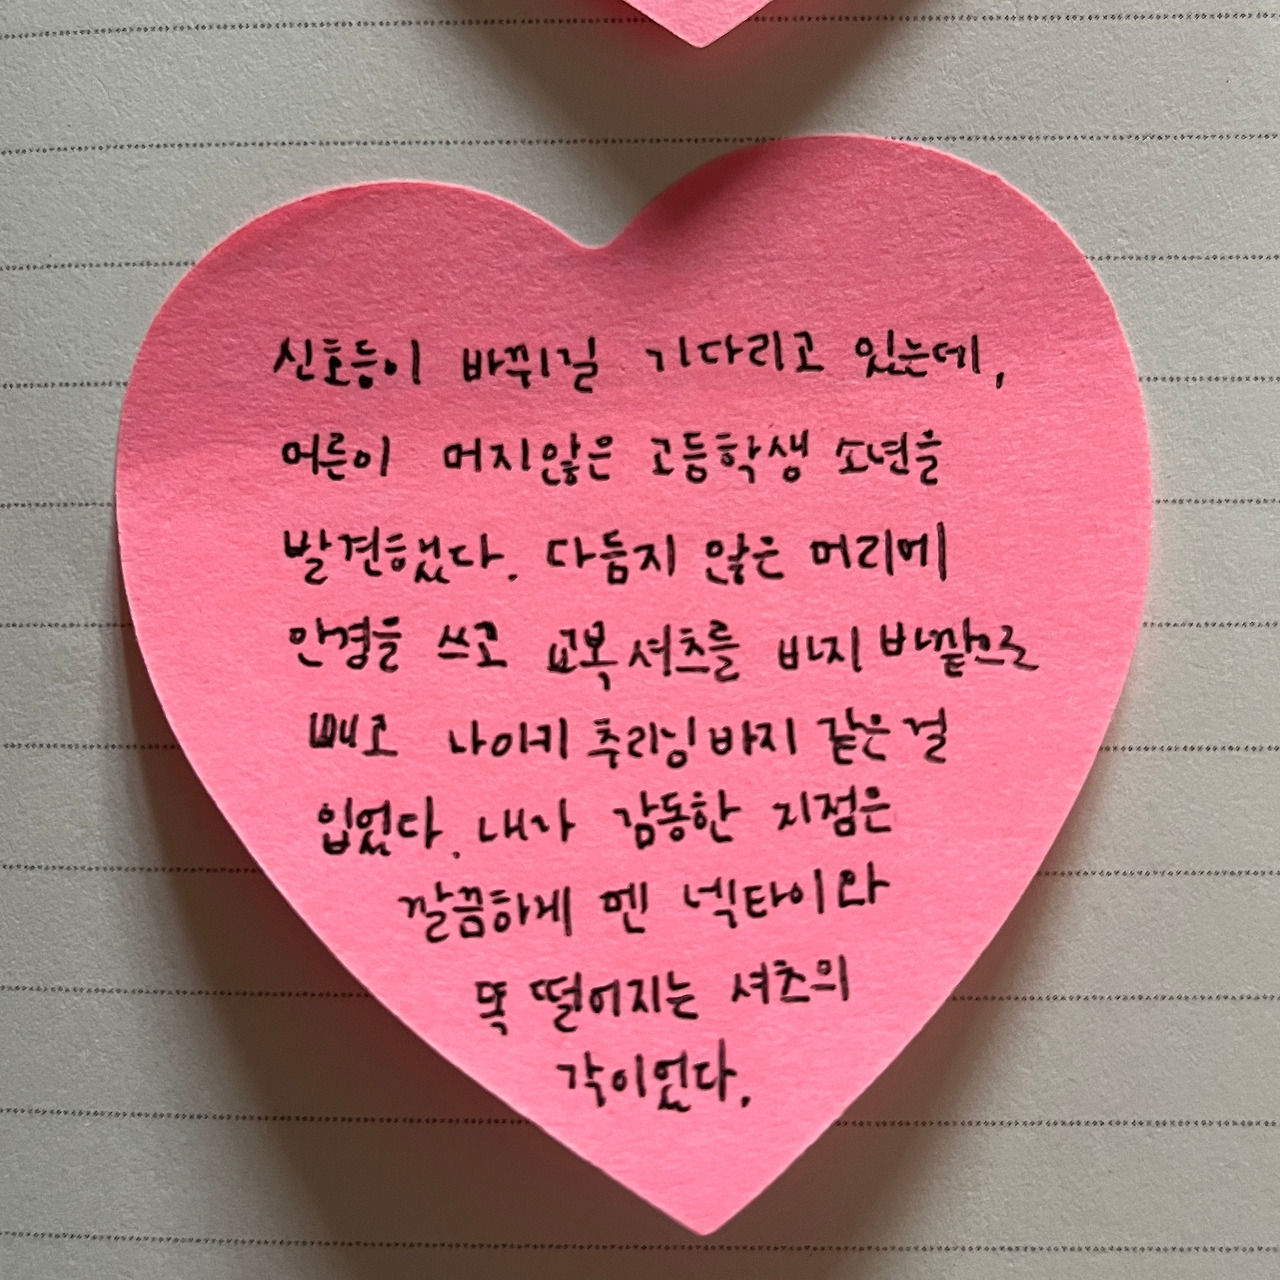 신호등이 바뀌길 기다리고 있는데,
어른이 머지않은 고등학생 소년을
발견했다. 다듬지 않은 머리에
안경을 쓰고 교복 셔츠를 바지 바깥으로
빼고 나이키 추리닝 바지 같은 걸
입었다. 내가 감동한 지점은
깔끔하게 멘 넥타이와
똑 떨어지는 셔츠의
각이었다.